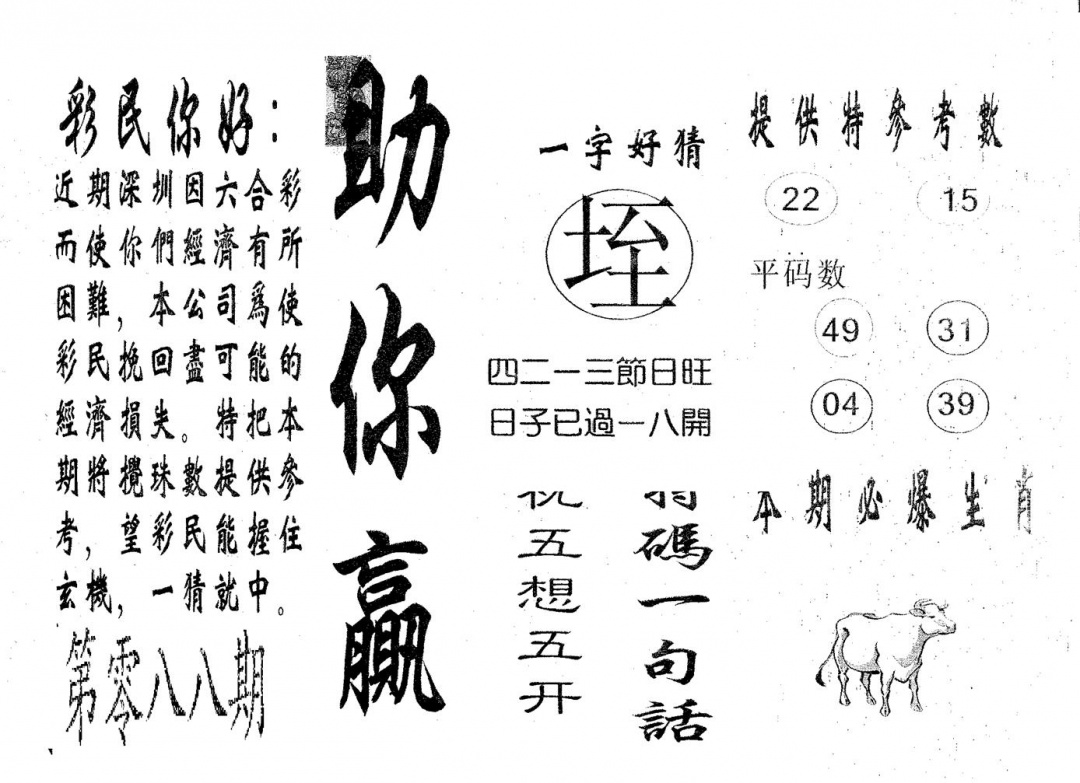 彩民你好：
近期深圳因六合彩
而使你們經濟有所
困難，本公司爲使
彩民挽回盡可能的
經濟損失。特把本
期將攪珠數提供參
考，望彩民能握住
玄機，一猜就中。
第零八八期
助你贏
一字好猜
垤
四二一三節日旺
日子已過一八開
五想五开
碼一句話
提供特參考數
22 15
平码数
49 31
04 39
本期必爆生肖